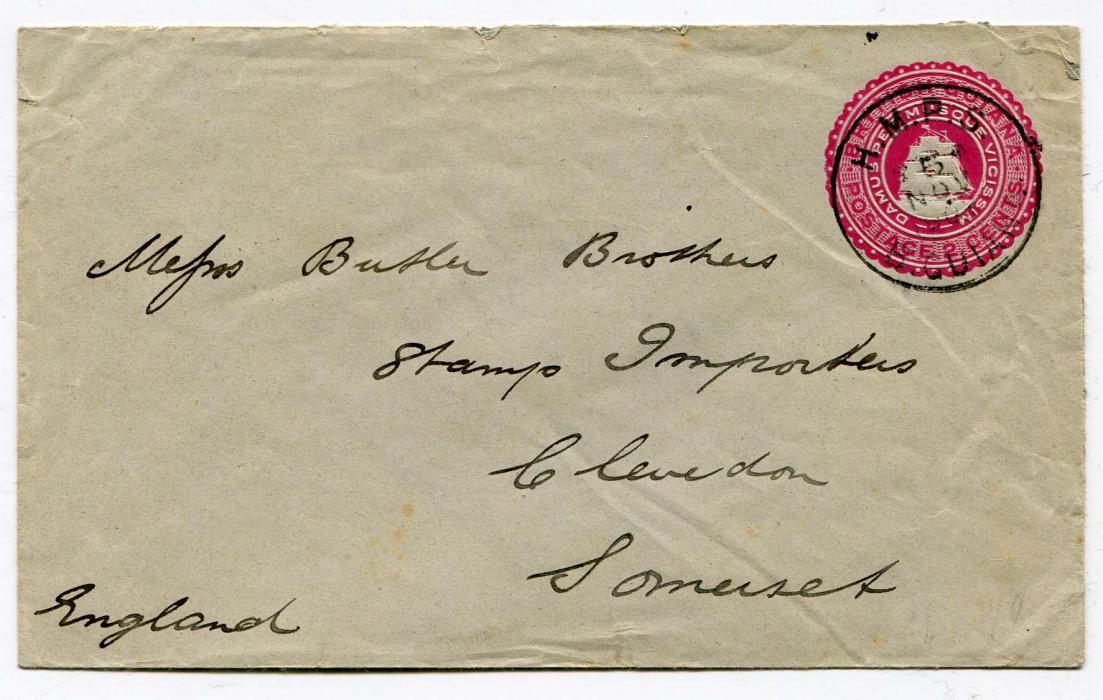 BRITISH GUIANA
POSTAGE 2 CENTS
DAMUS PETIMUSQUE VICISSIM
H.M.P.S.
B. GUIANA
NO
Messrs Butler Brothers
Stamp Importers
Clevedon
Somerset
England